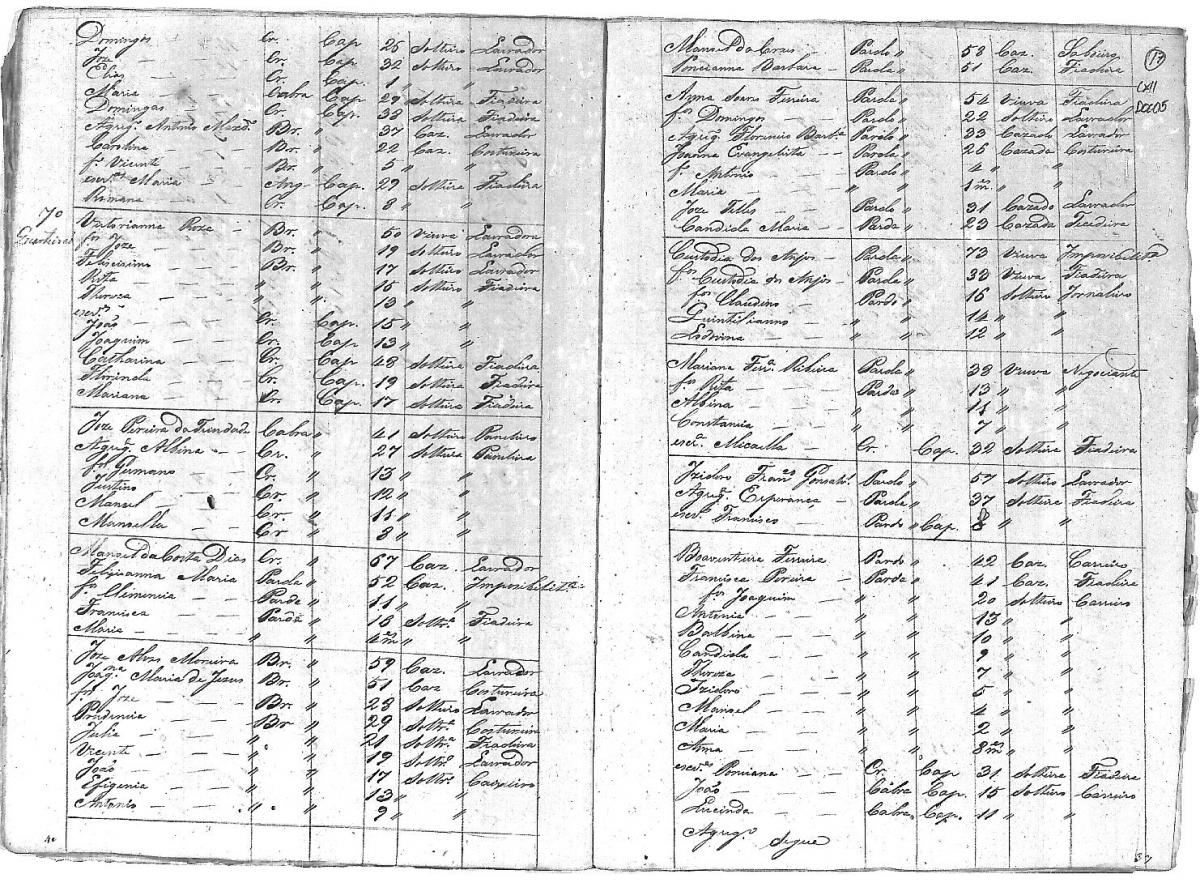 Domingos Cr. Cap 25 Solteiro Lavrador
Joze — — Cr. Cap. 32 Solteiro Lavrador
Elias — — Cr. Cap. 1 " "
Maria — — Cabra Cap. 29 Solteira Fiadeira
Domingas — Cr. Cap. 38 Solteira Fiadeira
Agreg.º Antonio Br. " 37 Caz. Lavrador
Carolina — Br. " 22 Caz. Costureira
f.º Vicente — Br. " 5 " "
escr.ᵒˢ Maria Ang. Cap. 29 Solteira Fiadeira
Cr. Cap. 8 " "
7º
Victorianna Roza — Br. " 50 Viuva Lavradora
f.ºˢ Joze — — Br. " 19 Solteiro Lavrador
Felicissimo — Br. " 17 Solteiro Lavrador
Rita — — " " 15 Solteira Fiadeira
Thereza — " " 13 " "
escr.ᵒˢ
João — — Cr. Cap. 15 " "
Joaquim — Cr. Cap 13 " "
Catharina — Cr. Cap 48 Solteira Fiadeira
Florinda — Cr. Cap. 19 Solteira Fiadeira
Mariana — Cr. Cap. 17 Solteira Fiadeira
Joze Pereira da Trindade Cabra " 41 Solteiro
Agreg.ª Albina — — Cr. " 27 Solteira
f.ºˢ Germano — Cr. " 13 " "
Justino — — Cr. " 12 " "
Manoel — — Cr. " 11 " "
Manoella — — Cr " 8 " "
Manoel da Costa Dias Cr. " 57 Caz. Lavrador
Maria Parda " 52 Caz.
f.ª Clemencia — Parda " 11 " "
Francisca — Parda " 18 Soltr.ª Fiadeira
Maria — — " " 4 m " "
Joze Alves Moreira Br. " 59 Caz. Lavrador
Joaq.ⁿᵃ Maria de Jesus Br. " 51 Caz Costureira
f.ºˢ Joze — — Br. " 28 Solteiro Lavrador
Prudencia — Br " 29 Soltr.ª Costureira
Julia — — " " 21 Soltr.ª Fiadeira
Vicente — — " " 19 Soltr.º Lavrador
João — — " " 17 Soltr.º Caixeiro
Efigenia — — " " 13 " "
Antonio — — " " 9 " "
Manoel da — Pardo " 53 Caz.
Poncianna Barbara — Parda " 51 Caz. Fiadeira
17
Anna Ferreira Parda " 54 Viuva Fiadeira
f.º Domingos — Pardo " 22 Solteiro Lavrador
Agreg.º Florencio Pardo " 33 Cazado Lavrador
Joanna Evangelista — Parda " 25 Cazada Costureira
f.º Antonio — Pardo " 4 " "
Maria — — " " 1 m " "
Joze Telles — Pardo " 31 Cazado Lavrador
Candida Maria — Parda " 23 Cazada
Custodia dos Anjos — Parda " 73 Viuva
f.ª Custodia dos Anjos — Parda " 33 Viuva Fiadeira
f.ºˢ Claudino — Pardo " 16 Solteiro Jornaleiro
Quintilianno — " " 14 " "
— — " " 12 " "
Mariana Ribeira Parda " 38 Viuva Negociante
f.ᵃˢ Rita — — Parda " 13 " "
Albina — — " " 11 " "
Constancia — " " 7 " "
escr.ª Micaella — Cr. Cap. 32 Solteira Fiadeira
Izidoro Fran.ᶜᵒ Pardo " 57 Solteiro Lavrador
Agreg.ª Esperança — Parda " 37 Solteira Fiadeira
escr.º Francisco Pardo Cap. 8 " "
Boaventura Ferreira Pardo " 42 Caz. Carreiro
Francisca Pereira — Parda " 41 Caz. Fiadeira
f.ºˢ Joaquim — " " 20 Solteiro Carreiro
Antonia — — " " 13 " "
Balbina — — " " 10 " "
Candida — — " " 9 " "
Thereza — — " " 7 " "
Izidoro — — " " 5 " "
Manoel — — " " 4 " "
Maria — — " " 2 " "
Anna — — " " 8 m " "
escr.ᵒˢ Cr. Cap 31 Solteira Fiadeira
João — — Cabra Cap. 15 Solteiro Carreiro
Lucinda — Cabra Cap. 11 " "
Agreg.º Segue